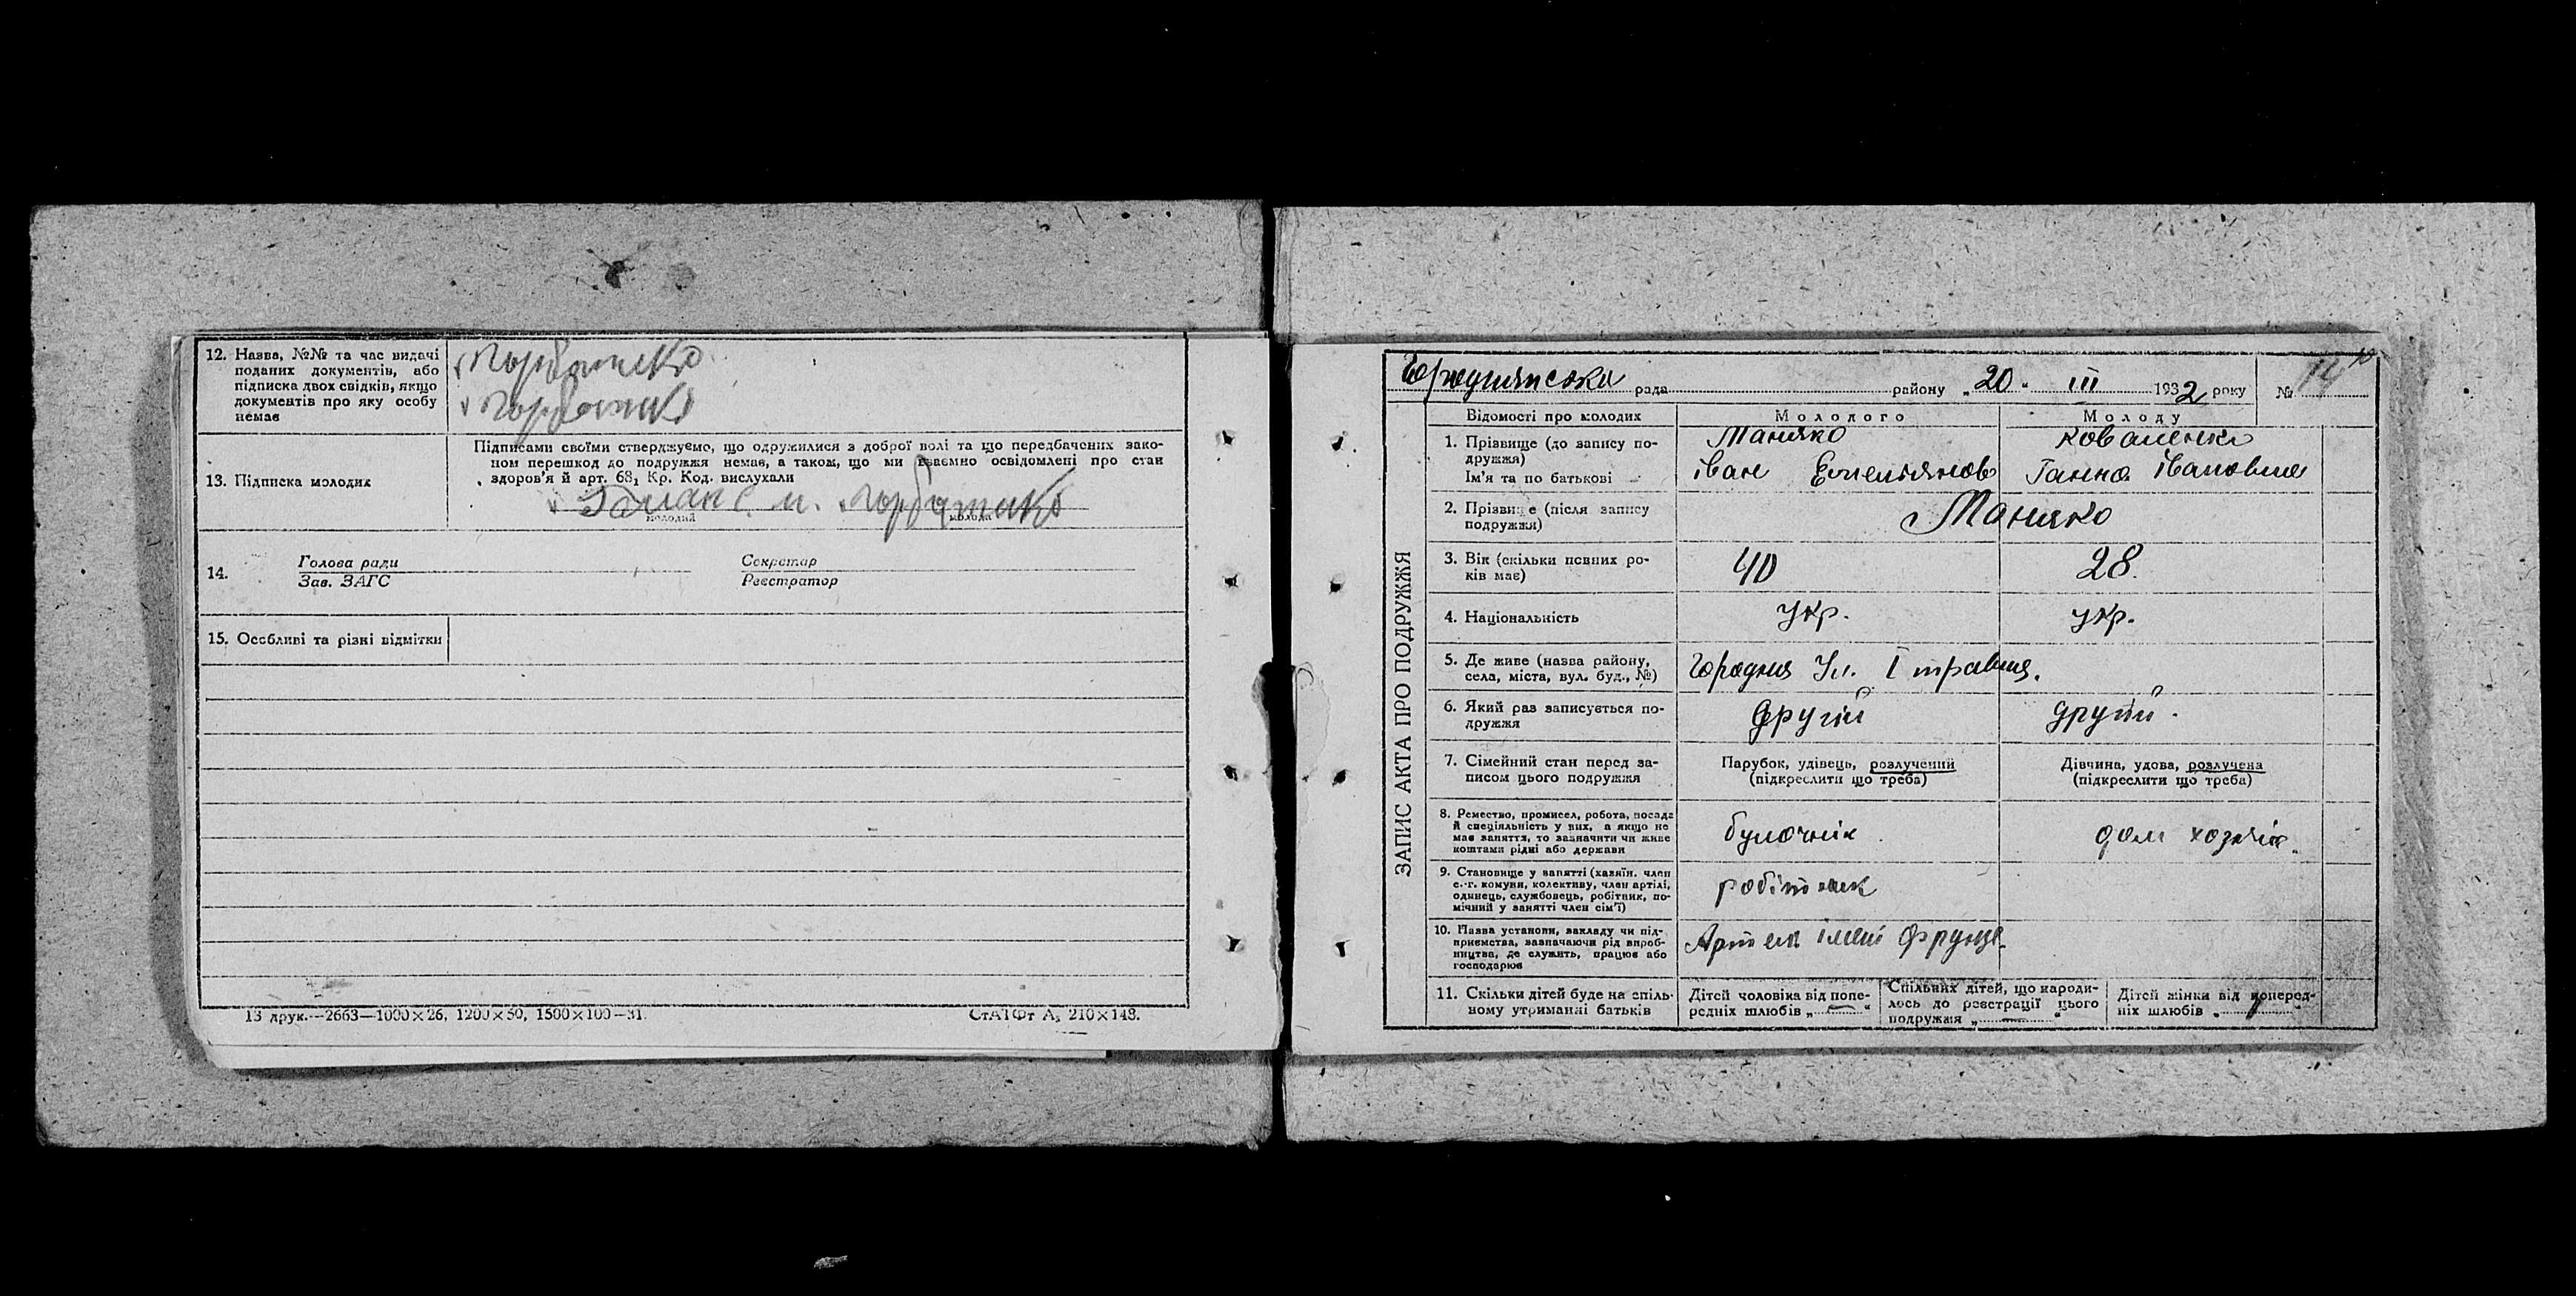 12. Назва, №№ та час видачі
поданих документів, або
підписка двох свідків, якщо
документів про яку особу
немає
Горбатенко
Горбатенко
13. Підписка молодих
Підписами своїми стверджуємо, що одружилися з доброї волі та що передбачених зако-
ном перешкод до подружжя немає, а також, що ми взаємно освідомлені про стан
здоров'я й арт. 68₁ Кр. Код. вислухали
молодий
молода
14.
Голова ради
Зав. ЗАГС
Секретар
Реєстратор
15. Особливі та різні відмітки
13 друк.—2663—1000×26, 1200×50, 1500×100—31.
СтАТФт А₅ 210×148.
ЗАПИС АКТА ПРО ПОДРУЖЖЯ
Городнянська рада району „20" III 1932 року № 14
Відомості про молодих
Молодого
Молоду
1. Прізвище (до запису по-
дружжя)
Ім'я та по батькові
Маняко
Іван Емельянов
Коваленко
Ганна Івановна
2. Прізвище (після запису
подружжя)
Маняко
3. Вік (скільки повних ро-
ків має)
40
28.
4. Національність
укр.
укр.
5. Де живе (назва району,
села, міста, вул. буд., №)
Городня Ул. 1 травня.
6. Який раз записується по-
дружжя
другій
другій.
7. Сімейний стан перед за-
писом цього подружжя
Парубок, удівець, розлучений
(підкреслити що треба)
Дівчина, удова, розлучена
(підкреслити що треба)
8. Ремество, промисел, робота, посада
й спеціяльність у них, а якщо не
має заняття, то зазначити чи живе
коштами рідні або держави
булочнік
дом хозяйк.
9. Становище у занятті (хазяїн, член
с.-г. комуни, колективу, член артілі,
одинець, службовець, робітник, по-
мічний у занятті член сім'ї)
робітник
10. Назва установи, закладу чи під-
приємства, зазначаючи рід вироб-
ництва, де служить, працює або
господарює
Артель імені Фрунзе
11. Скільки дітей буде на спіль-
ному утриманні батьків
Дітей чоловіка від попе-
редніх шлюбів „—"
Спільних дітей, що народи-
лось до реєстрації цього
подружжя „—"
Дітей жінки від поперед-
ніх шлюбів „1"